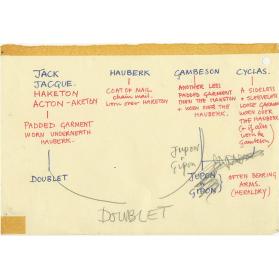 JACK
JACQUE.
HAKETON
ACTON-AKETON
PADDED GARMENT
WORN UNDERNEATH
HAUBERK.
DOUBLET
HAUBERK
COAT OF MAIL.
chain mail.
worn over HAKETON
GAMBESON
ANOTHER LESS
PADDED GARMENT
THEN THE HAKETON
+ WORN OVER THE
HAUBERK.
Jupon
Gipon
JUPON
GIPON
CYCLAS.
A SIDELESS
+ SLEEVELESS
LOOSE GARMENT
WORN OVER
THE HAUBERK
(+ if also
worn the
Gambeson)
OFTEN BEARING
ARMS.
(HERALDRY)
DOUBLET